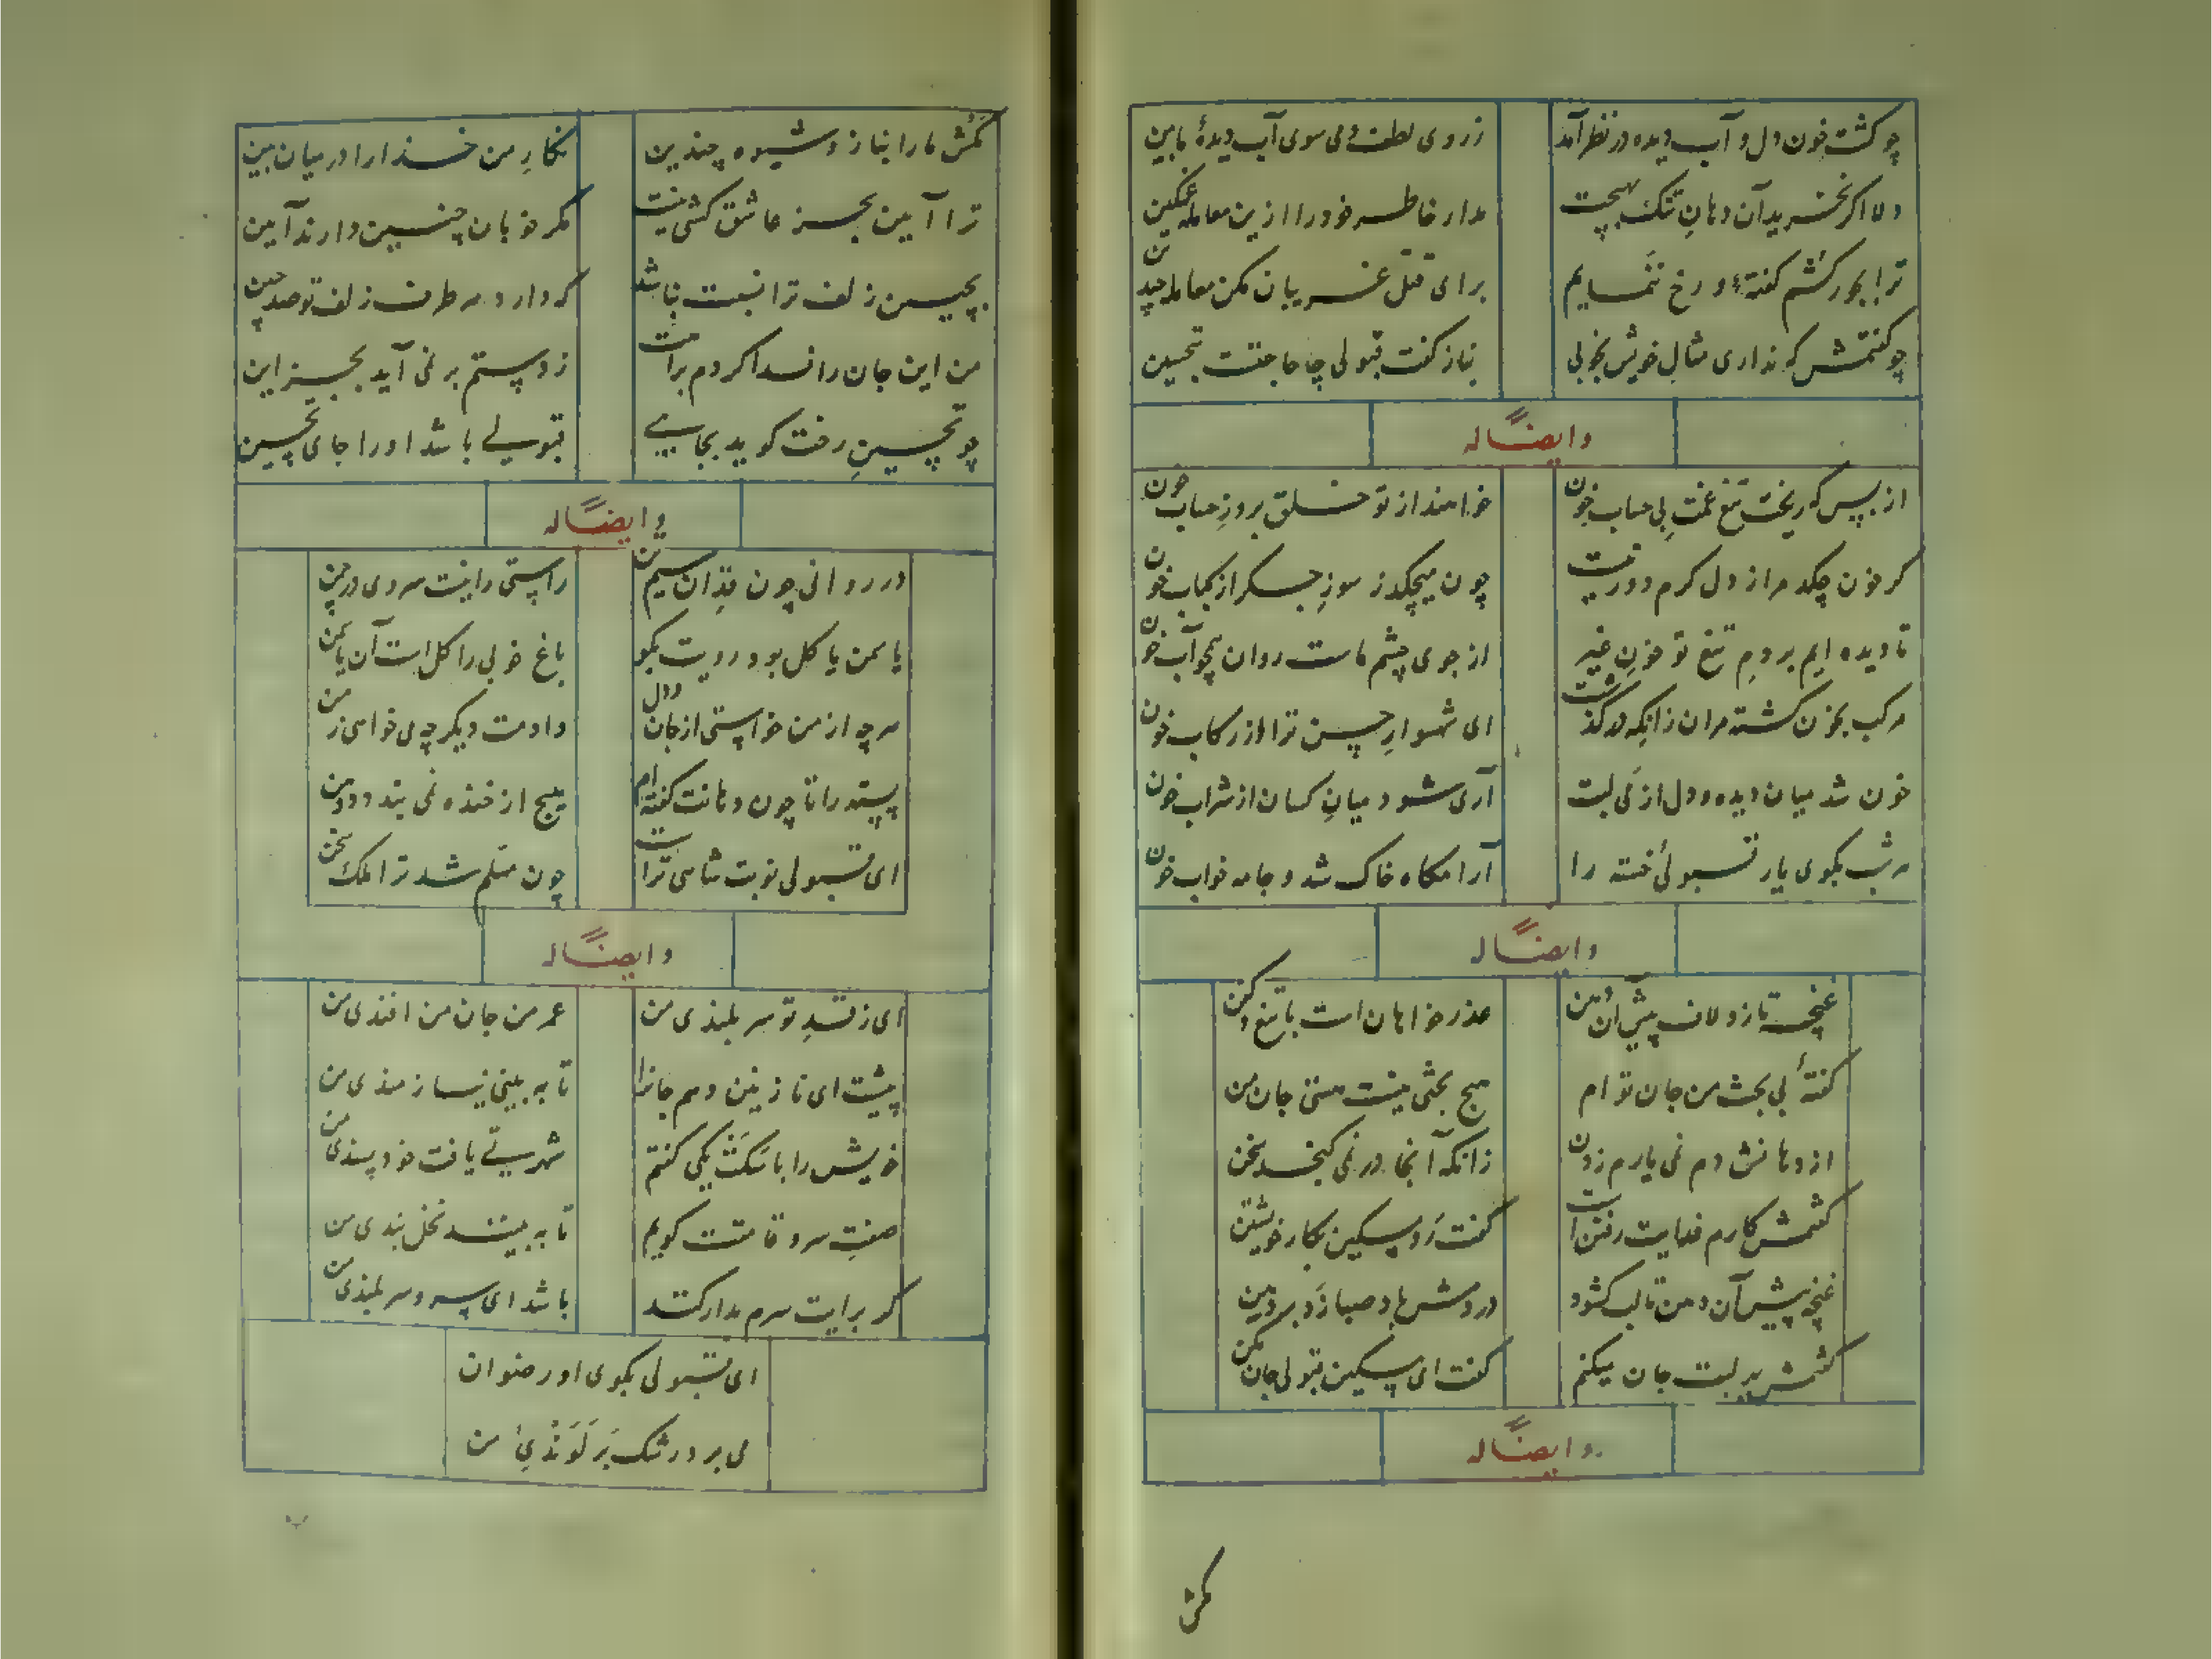 چو کشت خون دل و آب دیده در نظر آمد زروی لطف دمی سوی آب دیدهٔ ما بین
دلا اگر نخرید آن دهان تنک بهیچت مدار خاطر خود را ازین معامله غمگین
ترا بجور کشم گفتهٔ و رخ ننمایم برای قتل غریبان مکن معامله چندین
چو گفتمش که نداری مثال خویش بخوبی بناز گفت قبولی چه حاجتت بتحسین
وایضاً له
از بس که ریخت تیغ غمت بی حساب خون خواهند از تو خلق بروز حساب خون
گر خون چکد مرا ز دل گرم دور نیست چون میچکد ز سوز جگر از کباب خون
تا دیده ایم بر دم تیغ تو خون غیر از جوی چشم ماست روان همچو آب خون
مرکب بخون کشته مران زانکه در گذشت ای شهسوار حسن ترا از رکاب خون
خون شد میان دیده و دل از می لبت آری شود میان کسان از شراب خون
هر شب بکوی یار قبولیٔ خسته را آرامگاه خاک شد و جامه خواب خون
وایضاً له
غنچه تا زد لاف پیش آن دهن عذر خواهان است با تیغ و کفن
گفتهٔ بی بحث من جان تو ام هیچ بحثی نیست هستی جان من
از دهانش دم نمی یارم زدن زانکه آنجا در نمی گنجد سخن
گفتمش کارم فدایت رفتن است گفت رو مسکین بکار خویشتن
غنچه پیش آن دهن تا لب گشود در دمش باد صبا زد بر دهن
گفتمش بر لبت جان میکنم گفت ای مسکین قبولی جان مکن
وایضاً له
کمش
کمش ما را بناز و شیوه چندین نکار من خدا را در میان بین
ترا آیین بجز عاشق کشی نیست مگر خوبان چنین دارند آیین
بچین زلف ترا نسبت نباشد که دارد هر طرف زلف تو صد چین
من این جان را فدا کردم برایت ز دستم بر نمی آید بجز این
چو تحسین رخت گوید بجایی قبولی باشد او را جای تحسین
وایضاً له
در روانی چون قد آن سیم تن راستی را نیست سروی در چمن
یا سمن یا گل بود رویت بگو باغ خوبی را گل است آن یا سمن
هر چه از من خواستی از جان و دل دادمت دیگر چه می خواهی ز من
پسته را تا چون دهانت گفته ام هیچ از خنده نمی بندد دهن
ای قبولی نوبت شاهی تراست چون مسلم شد ترا ملک سخن
وایضاً له
ای ز قد تو سر بلندی من عمر من جان من افندی من
پیشت ای نازنین دهم جانرا تا به بینی نیازمندی من
خویش را با سگت یکی گفتم شهرتی یافت خود پسندی من
صفت سرو قامتت گویم تا به بینند نخل بندی من
گر برایت سرم بدار کنند باشد ای سرو سر بلندی من
ای قبولی بگوی او رضوان
می برد رشک بر لوندیٔ من